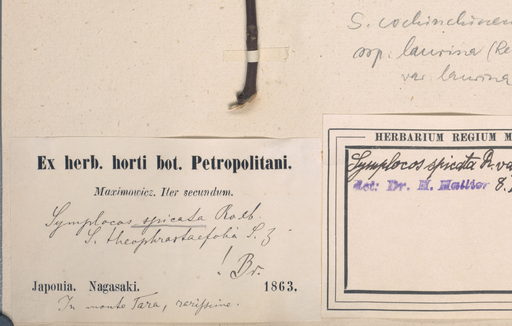 S. cochinchinen
ssp. laurina (Re
var. laurina
Ex herb. horti bot. Petropolitani.
Maximowicz. Iter secundum.
Symplocos spicata Roxb.
S. theophrastaefolia S. Z.
! Br.
Japonia. Nagasaki. 1863.
In monte Tara, rarissime.
HERBARIUM REGIUM M
Symplocos spicata R. va
det. Dr. H. Hallier